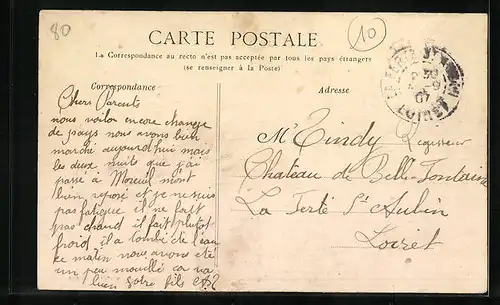 80
10
CARTE POSTALE
La Correspondance au recto n'est pas acceptée par tous les pays étrangers
(se renseigner à la Poste)
Correspondance
Adresse
LOIRET
Chers Parents
nous voilà encore change
de pays nous avons bien
marché aujourd'hui mais
les deux nuits que j'ai
passé à Moreuil mont
bien reposé et je ne suis
pas fatigué il ne fait
pas chaud il fait plutôt
froid il a tombé de l'eau
ce matin nous avons été
un peu mouillé ca va
bien votre fils
Mr Tindy Regisseur
Chateau de Belle-Fontaine
La Ferté St Aubin
Loiret